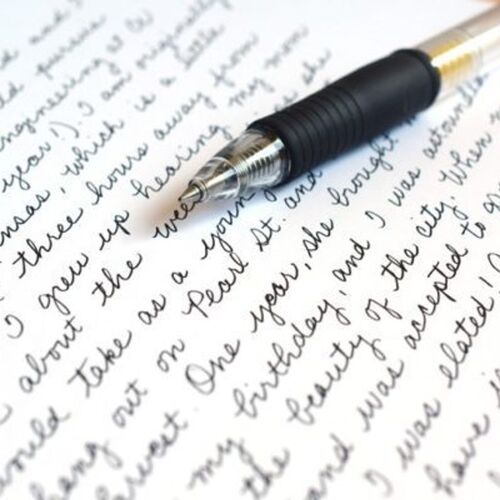 and I
pursue
engineering at a
year!). I am originally
nsas, which is a little
three hours away from
I grew up hearing my mom
about the wee
would take as a young
hang out on Pearl St. and
One year, she brought
my birthday, and I was astounded
the beauty of the city. When
and was accepted to
I was elated!
have